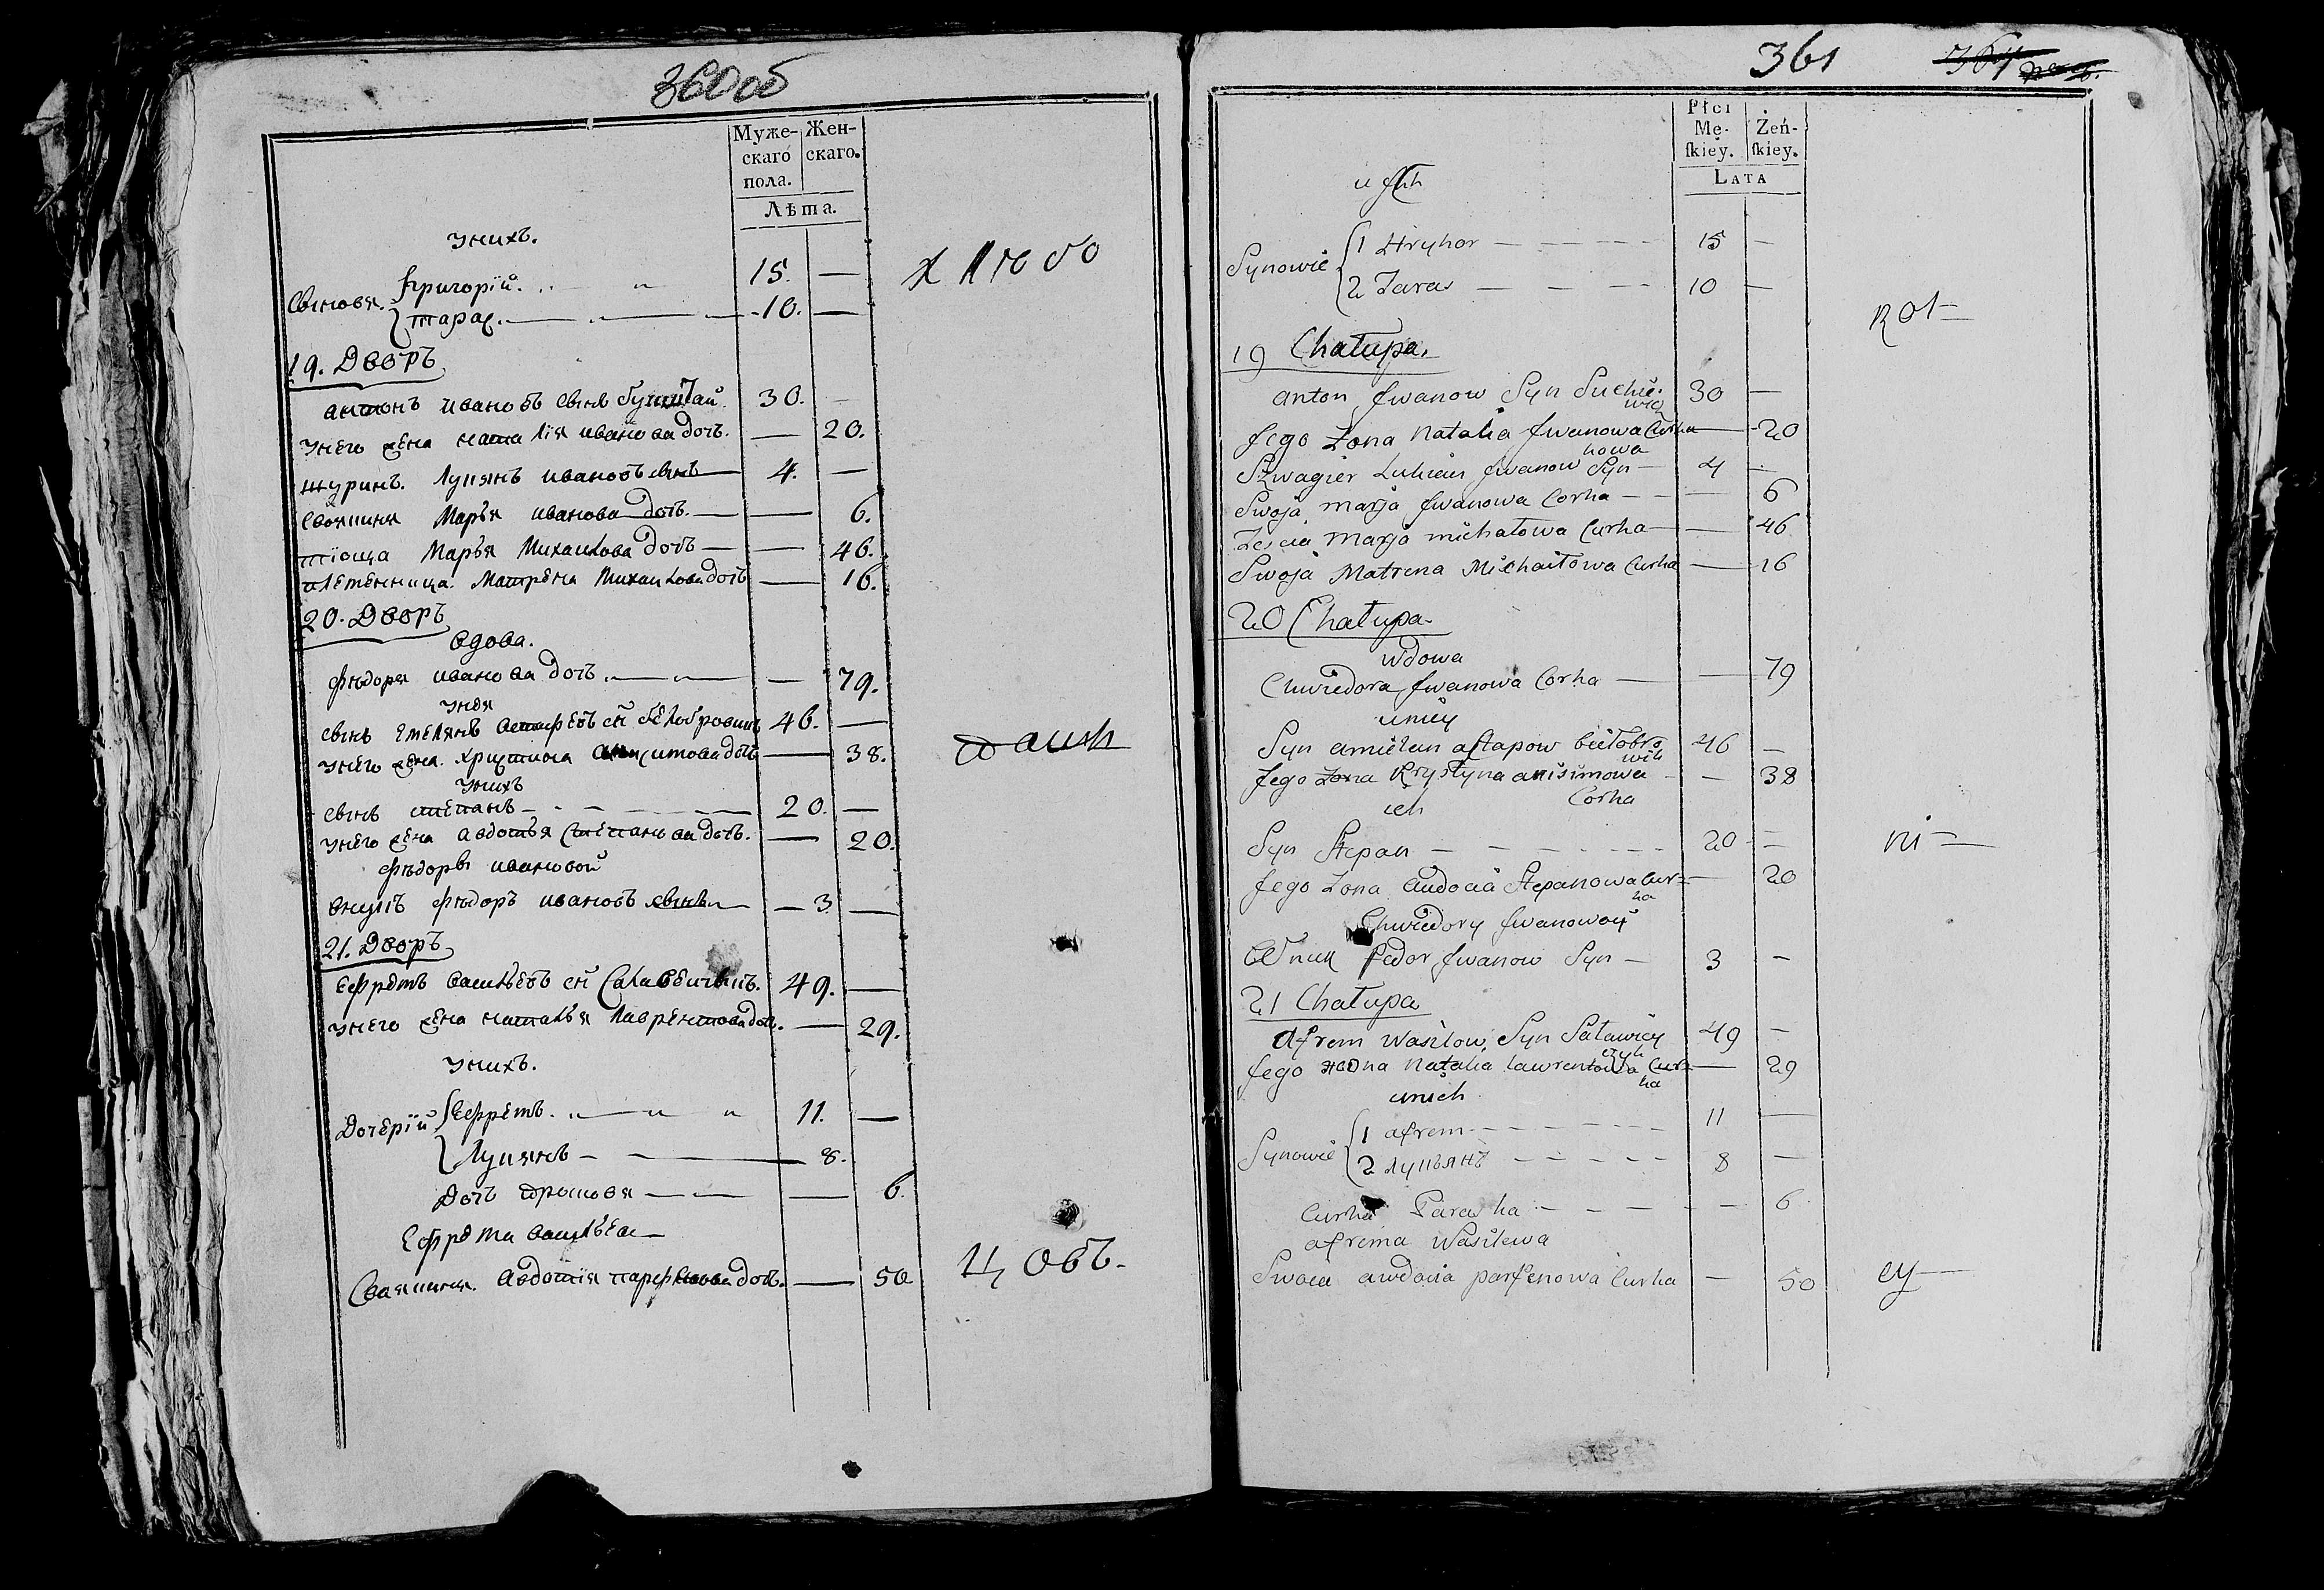 360 об
Муже-
скаго
пола.
Жен-
скаго.
Лѣта.
Унихъ.
Сынов̾я. Григорій. 15. —
Тарас. 10. —
19. Дворъ
Антонъ Ивановъ сынъ 30. —
Унего жена Наталія Иванова дочь. — 20.
шуринъ. Лукянъ Ивановъ сынъ 4. —
Своячиня Марья Иванова дочь. — 6.
тіоща Марья Михайлова дочь — 46.
племенница. Матрена Михайлова дочь — 16.
20. Дворъ
вдова.
Фѣдоря Иванова дочь. — 79.
Унея
сынъ Емелянъ Астафевъ сй Белобровикъ 46. —
Унего жена. Христина дочь — 38.
Унихъ
сынъ Степанъ 20. —
Унего жена Авдотья Степанова дочь. — 20.
Фѣдоры Ивановой
внукъ Фѣдоръ Ивановъ сынъ — 3. —
21. Дворъ
Ефремъ Васильевъ сй 49. —
Унего жена Наталья Лаврентова дочь. — 29.
Унихъ.
Дочерій Ефремъ. 11. —
Лукянъ — 8.
Дочь — 6.
Ефрема Васильева
Своячиня. Авдотія дочь. — 50
361
Płci
Mę-
ſkiey.
Żeń-
ſkiey.
Lata
u ich
Synowie 1 Hryhor 15 —
2 Taras 10 —
19 Chałupa.
Anton Jwanow Syn Suchie-
wicz 30 —
Jego Żona Natalia Jwanowa Curka — 20
Szwagier Lukian Jwanow Syn 4 —
Swoja Marja Jwanowa Corka — 6
Marja Michałowa Curka — 46
Swoja Matrena Michaiłowa Curka — 16
20 Chałupa
wdowa
Chwiedora Jwanowa Corka — 79
u niey
Syn Amielan Astapow Biełobro
wik 46 —
Jego Żona Krystyna Anisimowa
Corka — 38
ich
Syn Stepan 20 —
Jego Żona Audocia Stepanowa Cur-
ka — 20
Chwiedory Jwanowoy
Wnuk Fedor Jwanow Syn — 3 —
21 Chałupa
Afrem Wasilow Syn Saławiey
czyk 49 —
Jego жona Natalia Lawrentowa Cur-
ka — 29
u nich
Synowie 1 Afrem 11 —
2 Лукьянъ 8 —
Curka Paraska — 6
Afrema Wasilewa
Swoia Awdocia Parfenowa Curka — 50